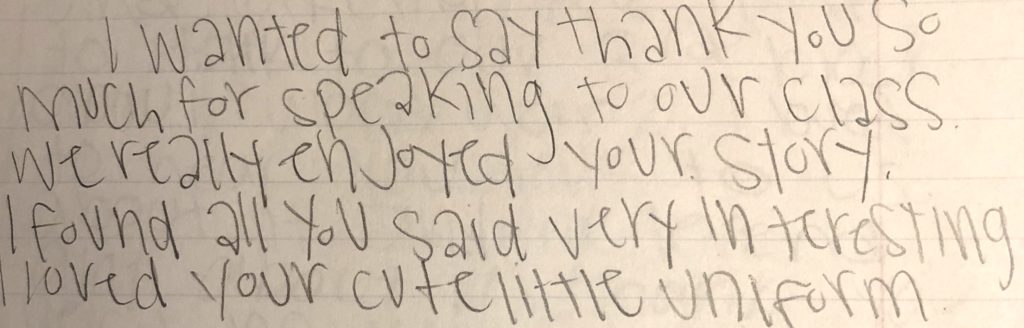 I wanted to say thank you so
much for speaking to our class.
We really enjoyed your story.
I found all you said very interesting
I loved your cute little uniform